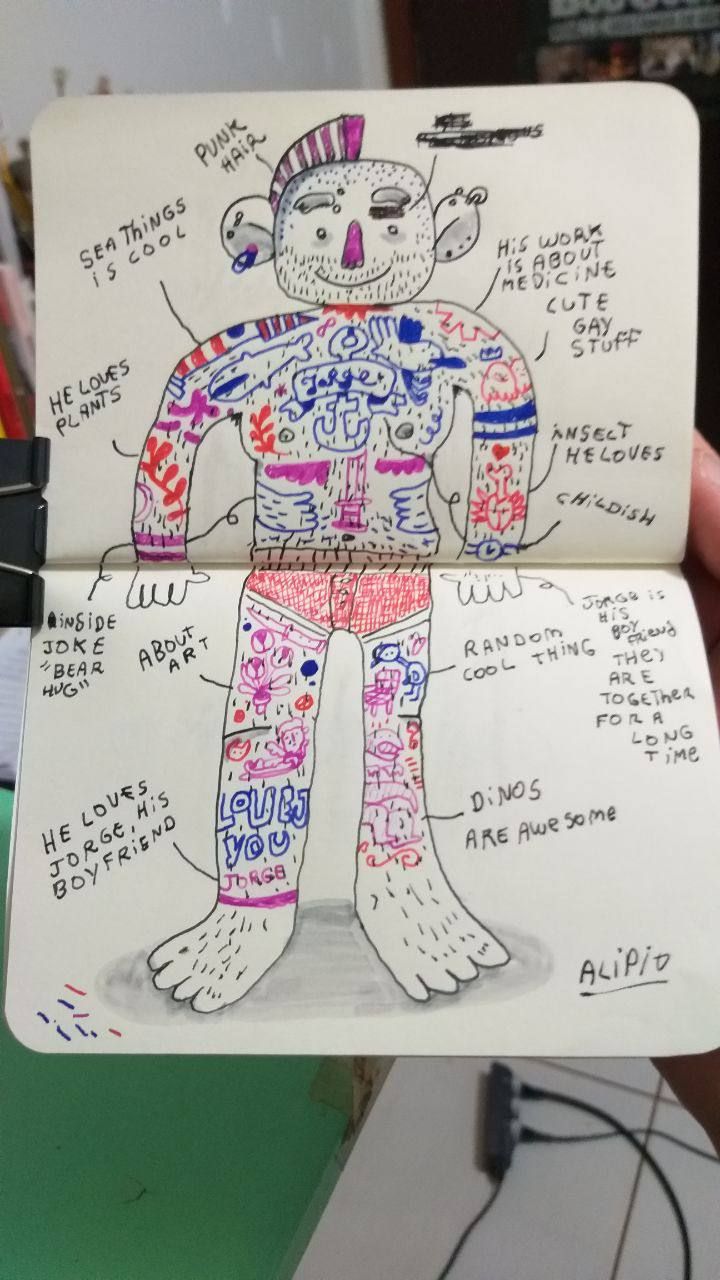 PUNK
HAIR
SEA THINGS
iS COOL
HE LOVES
PLANTS
HiS WORK
iS ABOUT
MEDiCiNE
CUTE
GAY
STUFF
iNSECT
HE LOVES
CHiLDiSH
Jorge
iNSiDE
JOKE
"BEAR
HUG"
ABOUT
ART
RANDOM
COOL THiNG
JORGE iS
HiS
BOY
FRiEND
THEY
ARE
TOGETHER
FOR A
LONG
TiME
HE LOVES
JORGE, HiS
BOYFRiEND
YOU
JORGE
DiNOS
ARE AWESOME
ALiPiO